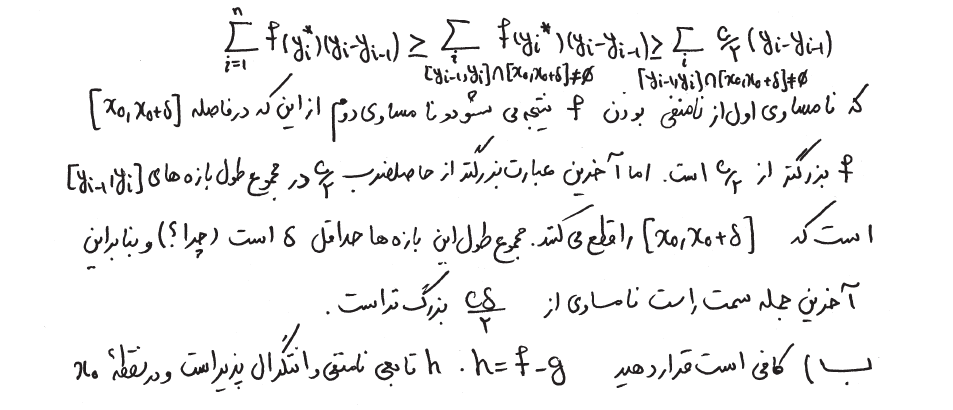 \sum_{i=1}^{n} f(y_i^*)(y_i-y_{i-1}) \geq \sum_{\substack{i \\ [y_{i-1},y_i]\cap[x_0,x_0+\delta]\neq\emptyset}} f(y_i^*)(y_i-y_{i-1}) \geq \sum_{\substack{i \\ [y_{i-1},y_i]\cap[x_0,x_0+\delta]\neq\emptyset}} \frac{c}{۲}(y_i-y_{i-1})
که نامساوی اول از نامنفی بودن f نتیجه می شود و نامساوی دوم از این که در فاصله [x_0, x_0+δ]
f بزرگتر از c/۲ است. اما آخرین عبارت بزرگتر از حاصلضرب c/۲ در مجموع طول بازه های [y_{i-1}, y_i]
است که [x_0, x_0+δ] را قطع می کنند. مجموع طول این بازه ها حداقل δ است (چرا؟) و بنابراین
آخرین جمله سمت راست نامساوی از cδ/۲ بزرگ تر است.
ب) کافی است قرار دهید h = f-g . h تابعی نامنفی و انتگرال پذیر است و در نقطهٔ x_0